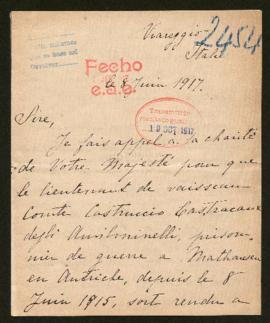 Viareggio
Italie
2454
Fecho
e.a.e.
le 8 Juin 1917.
Sire,
Je fais appel à la charité
de Votre Majesté pour que
le lieutenant de vaisseau
Comte Castruccio Castracane
degli Antelminelli, prison-
nier de guerre a Mathausen
en Autriche, depuis le 8
Juin 1915, soit rendu a